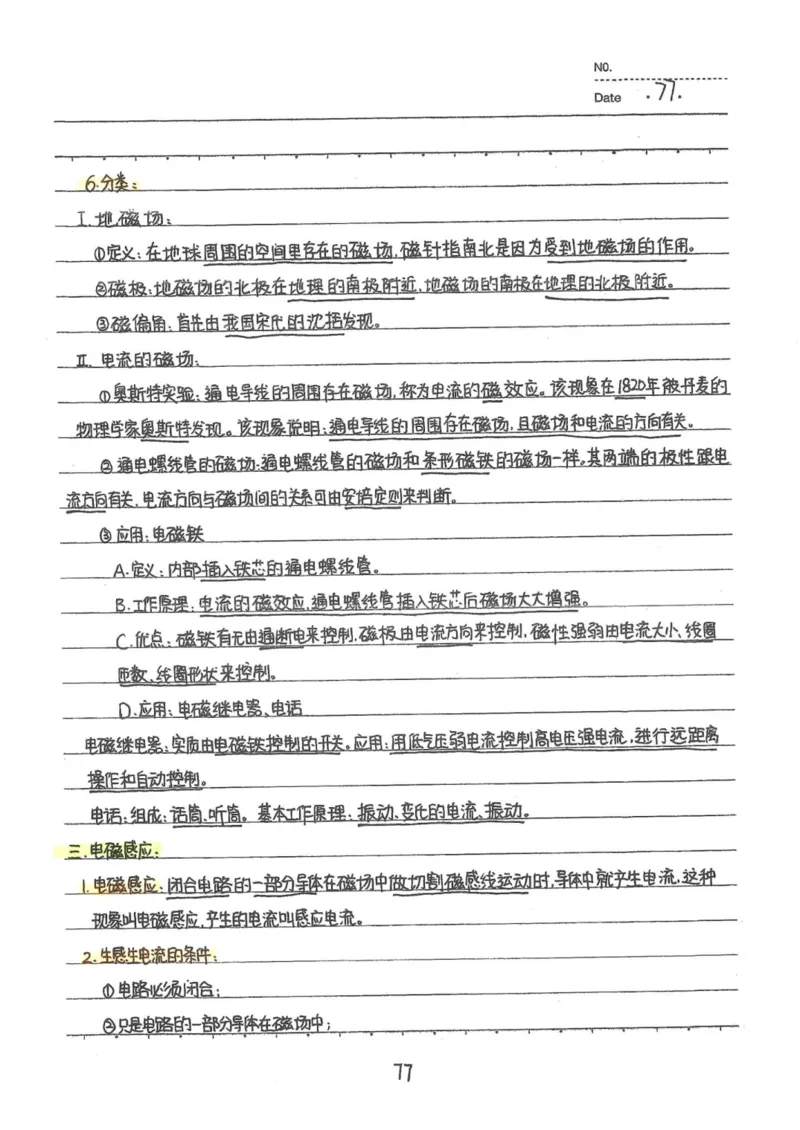 NO.
Date .77.
6.分类:
Ⅰ.地磁场:
①定义:在地球周围的空间里存在的磁场,磁针指南北是因为受到地磁场的作用。
②磁极:地磁场的北极在地理的南极附近,地磁场的南极在地理的北极附近。
③磁偏角:首先由我国宋代的沈括发现。
Ⅱ.电流的磁场:
①奥斯特实验:通电导线的周围存在磁场,称为电流的磁效应。该现象在1820年被丹麦的
物理学家奥斯特发现。该现象说明:通电导线的周围存在磁场,且磁场和电流的方向有关。
②通电螺线管的磁场:通电螺线管的磁场和条形磁铁的磁场一样。其两端的极性跟电
流方向有关,电流方向与磁场间的关系可由安倍定则来判断。
③应用:电磁铁
A.定义:内部插入铁芯的通电螺线管。
B.工作原理:电流的磁效应,通电螺线管插入铁芯后磁场大大增强。
C.优点:磁铁有无由通断电来控制,磁极由电流方向来控制,磁性强弱由电流大小、线圈
匝数、线圈形状来控制。
D.应用:电磁继电器、电话
电磁继电器:实质由电磁铁控制的开关。应用:用低气压弱电流控制高电压强电流,进行远距离
操作和自动控制。
电话:组成:话筒、听筒。基本工作原理:振动、变化的电流、振动。
三.电磁感应:
1.电磁感应:闭合电路的一部分导体在磁场中做切割磁感线运动时,导体中就产生电流,这种
现象叫电磁感应,产生的电流叫感应电流。
2.生感生电流的条件:
①电路必须闭合;
②只是电路的一部分导体在磁场中;
77